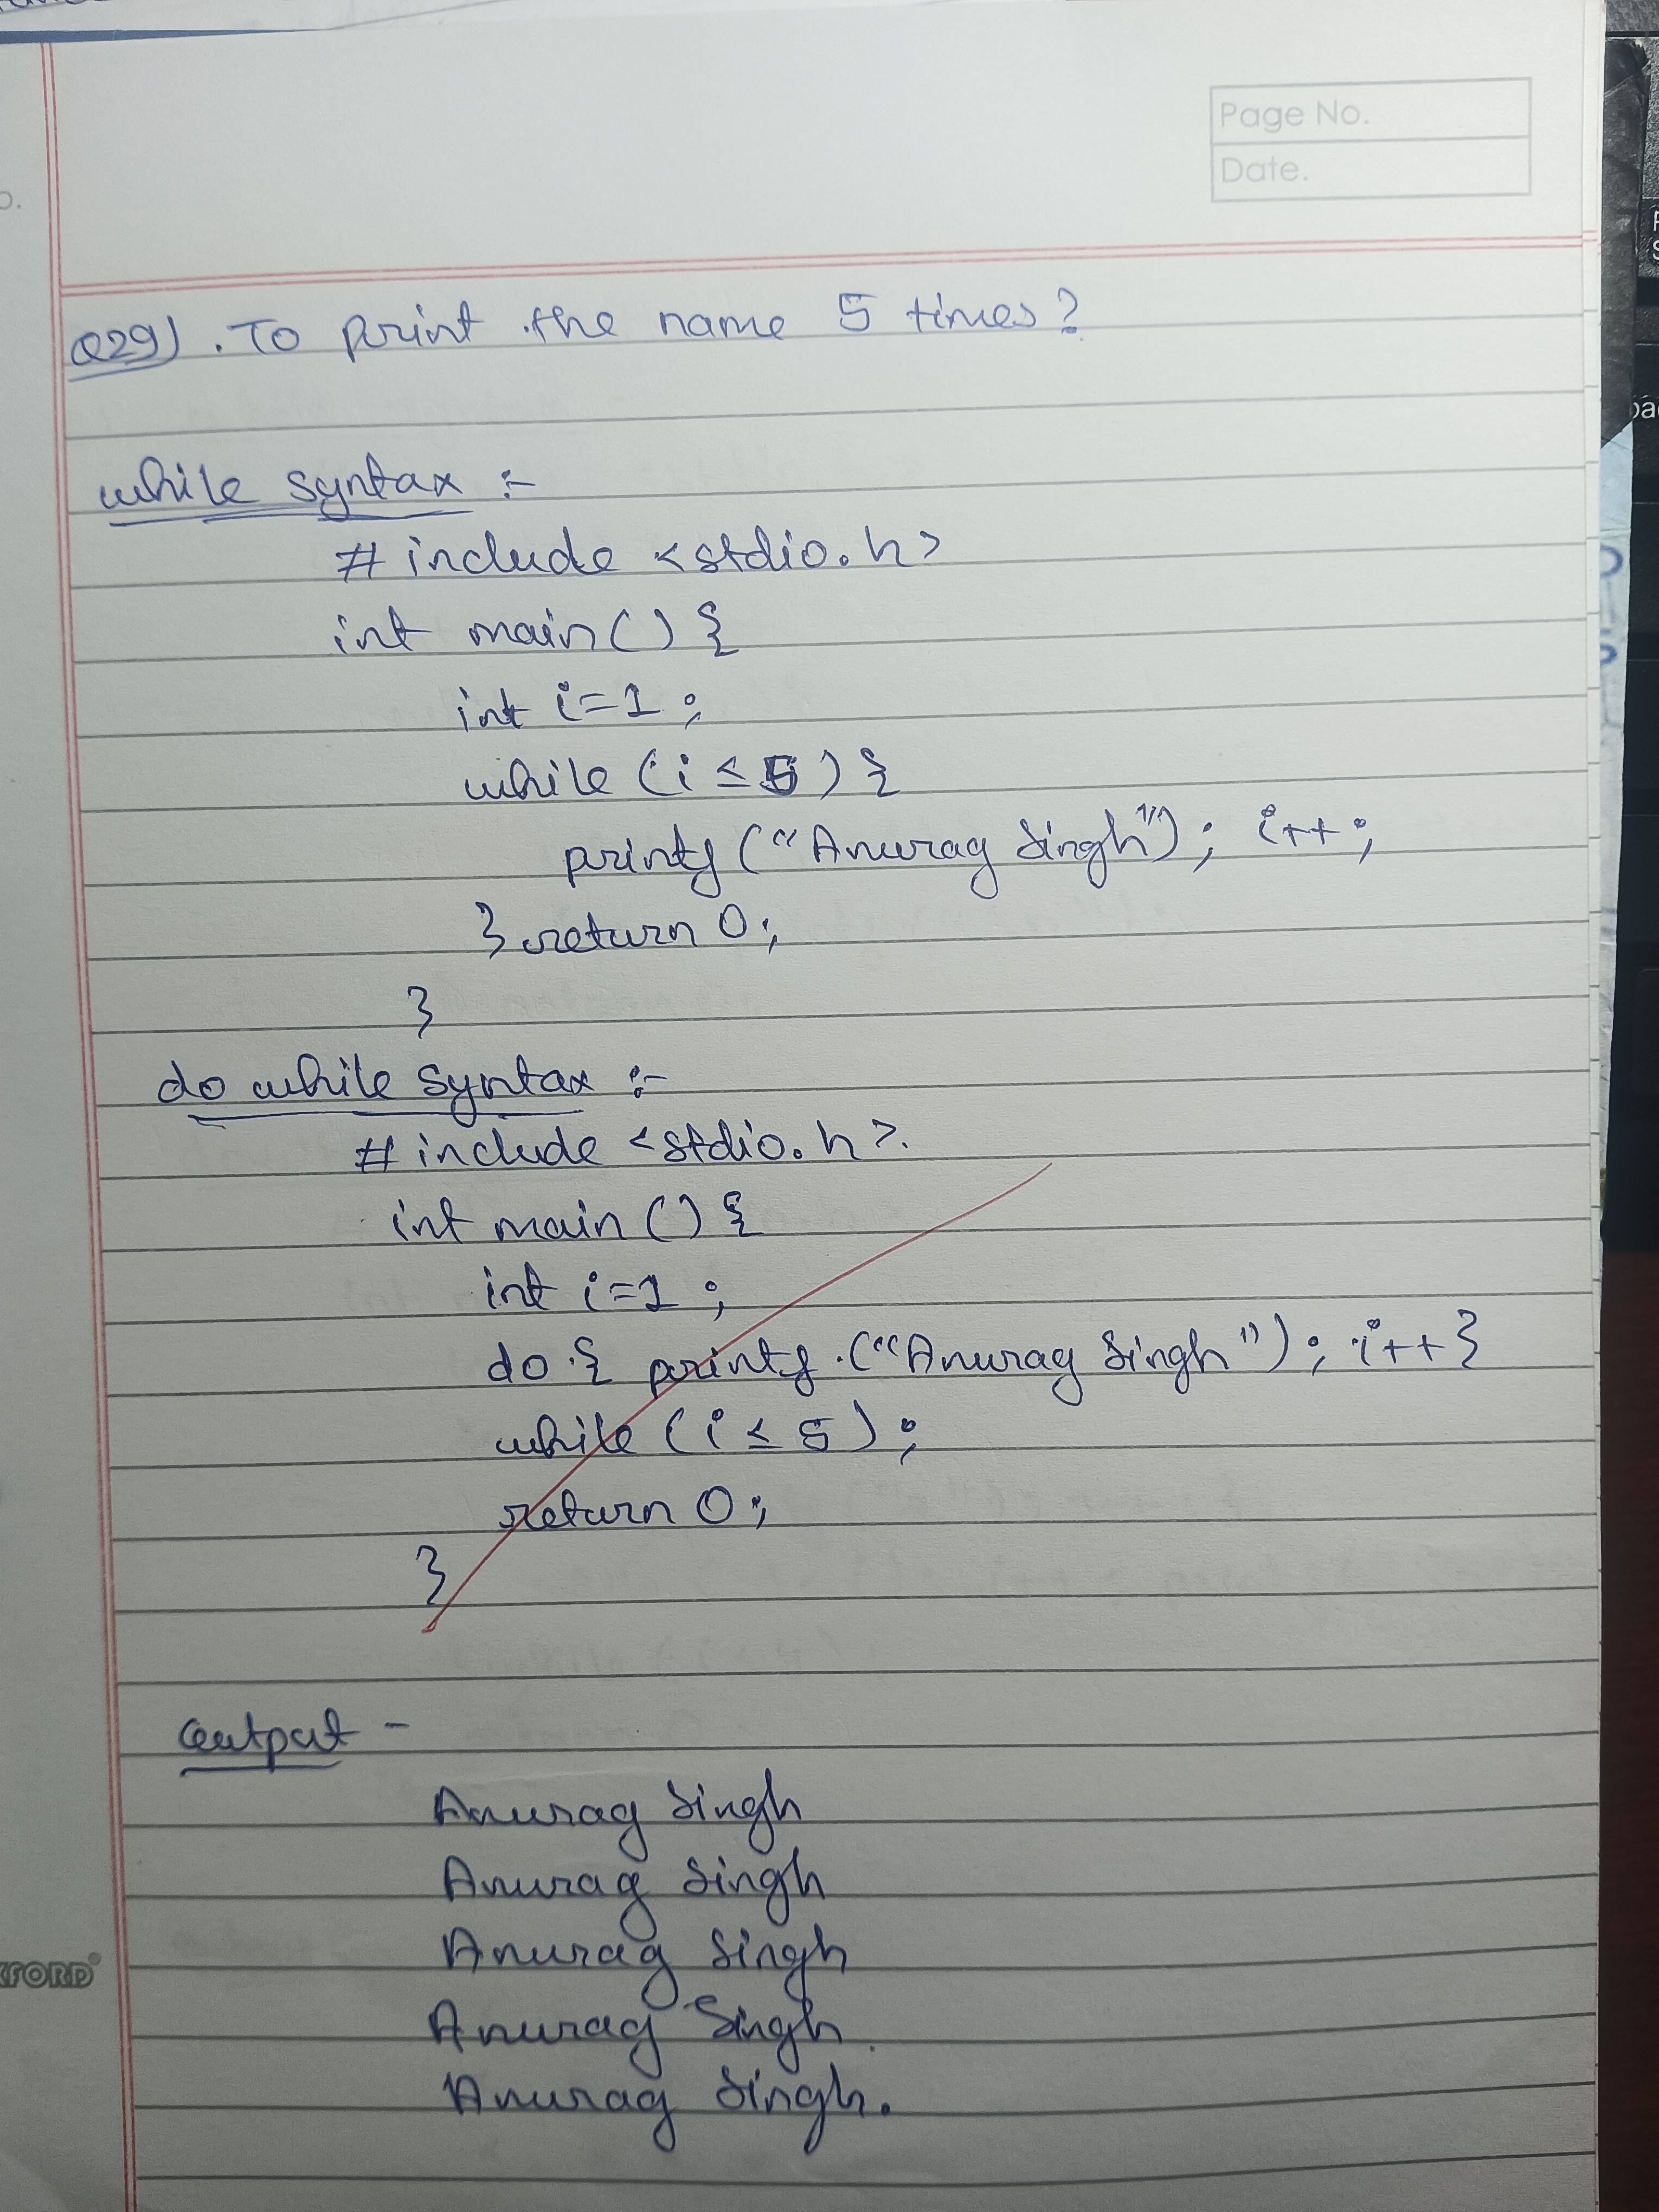 Page No.
Date.
Q29). To print the name 5 times?
while syntax :-
# include <stdio.h>
int main() {
int i=1;
while (i ≤ 5) {
printf ("Anurag Singh"); i++;
} return 0;
}
do while syntax :-
# include <stdio.h>.
int main () {
int i=1 ;
do { printf ("Anurag Singh"); i++}
while (i ≤ 5) ;
return 0;
}
Output -
Anurag Singh
Anurag Singh
Anurag Singh
Anurag Singh.
Anurag Singh.